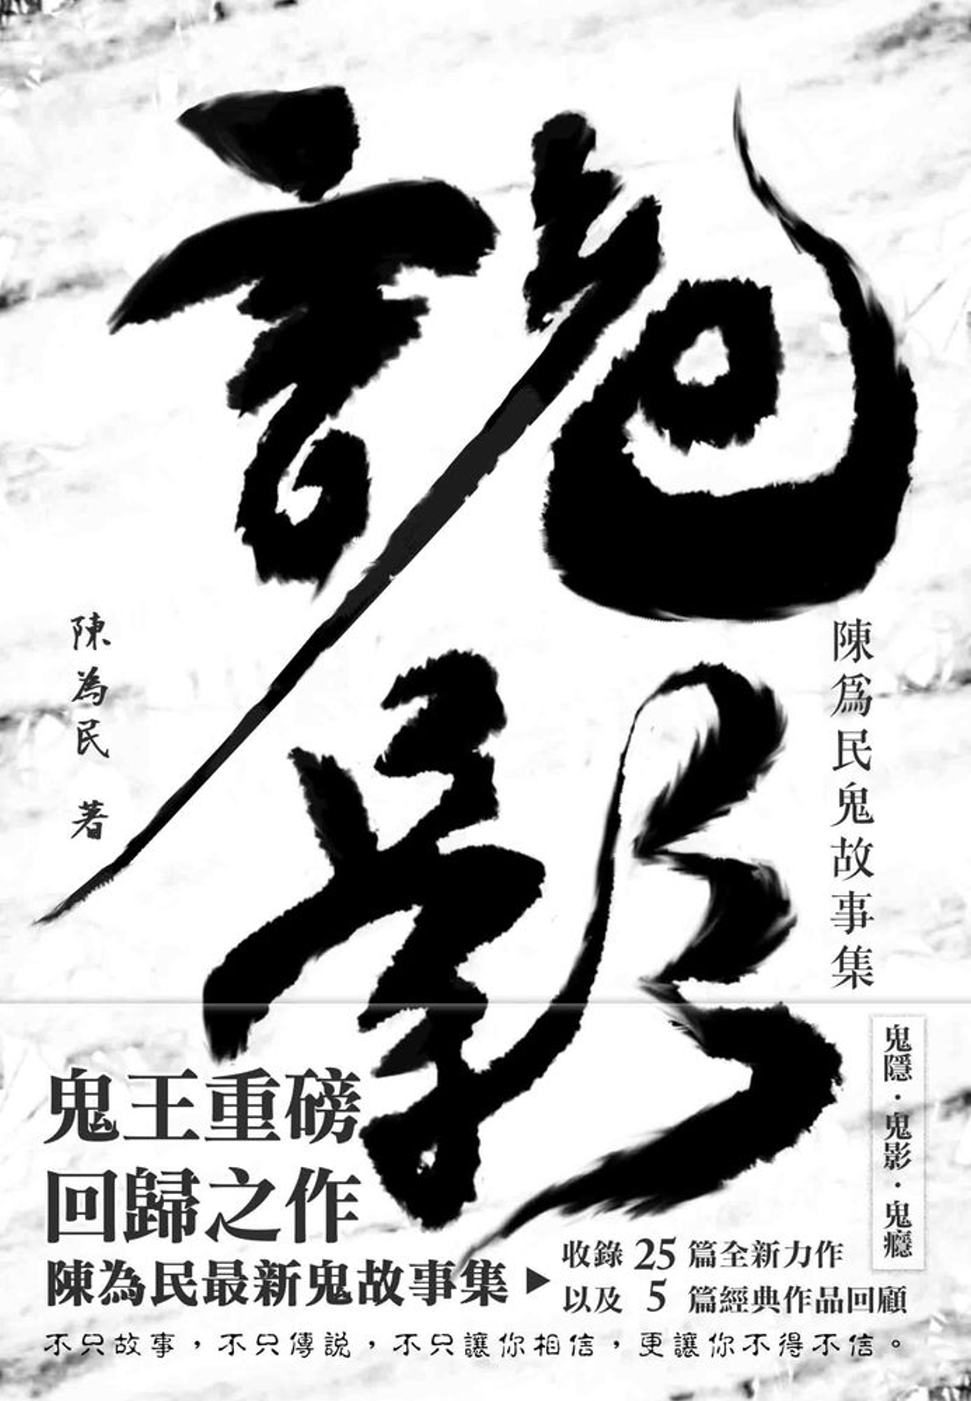 詭影
陳為民 著
陳爲民鬼故事集
鬼隱・鬼影・鬼癮
鬼王重磅
回歸之作
陳為民最新鬼故事集▶
收錄25篇全新力作
以及5篇經典作品回顧
不只故事，不只傳說，不只讓你相信，更讓你不得不信。